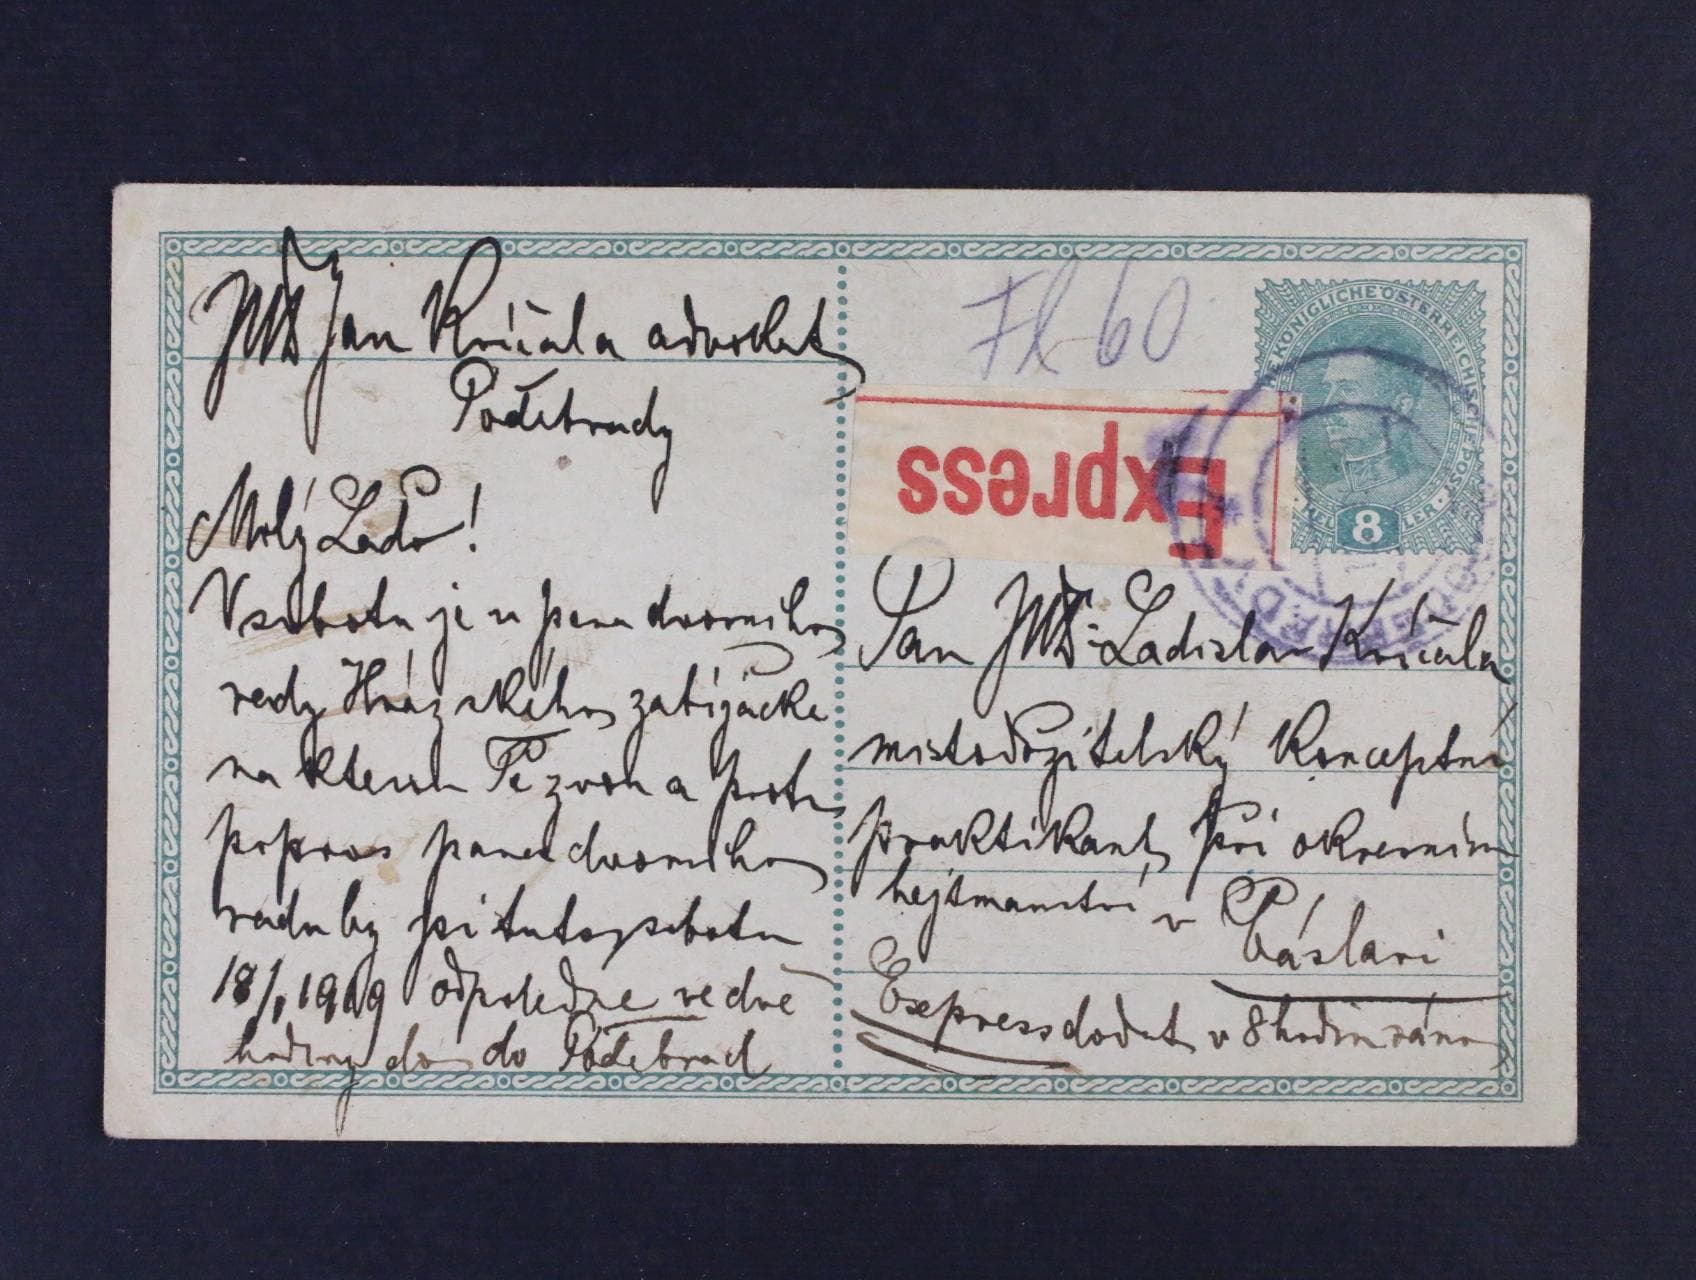 JUDr Jan Kričala advokát
Poděbrady
Milý Lado!
V sobotu je u pana dvorního
rady Hrázského zatijácka
na kterou Tě zvou a proto
popros pana dvorního
radu by jsi tuto sobotu
18/1 1919 odpoledne ve dvě
hodiny do Poděbrad
Fl 60
Express
KÖNIGLICHE ÖSTERREICHISCHE POST
8
Pan JUDr Ladislav Kričala
mistodržitelský konceptní
praktikant při okresním
hejtmanství v Čáslavi
Express dodat v 8 hodin ráno